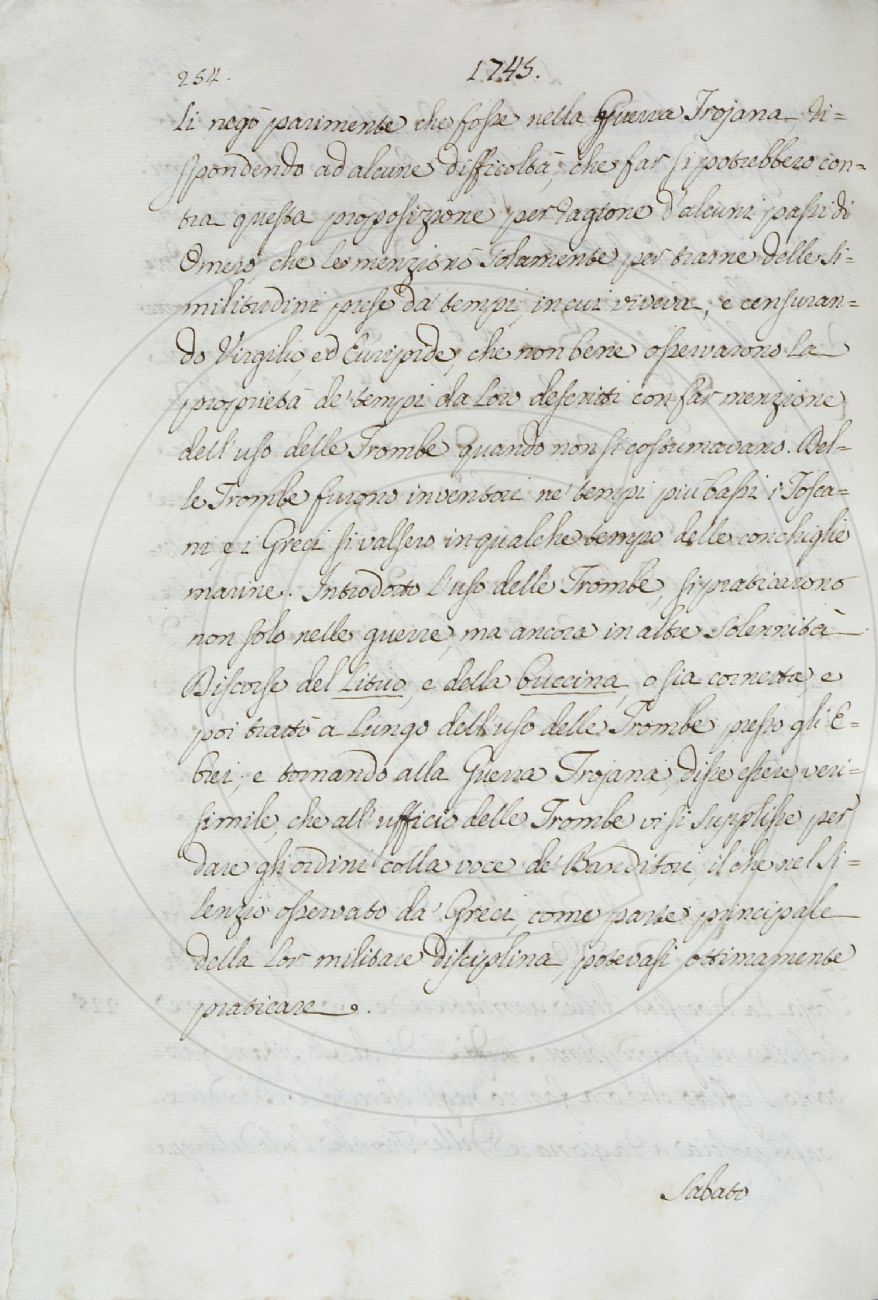 254.
1745.
li negò parimente che fosse nella Guerra Trojana, ri=
spondendo ad alcune difficoltà, che far si potrebbero con=
tra questa proposizione per ragione d'alcuni passi di
Omero che le menzionò solamente per trarne delle si=
militudini prese da' tempi, in cui viveva, e censuran=
do Virgilio, ed Euripide, che non bene osservarono la
proprietà de' tempi da loro descritti con far menzione
dell'uso delle Trombe quando non si costumavano. Del=
le Trombe furono inventori ne' tempi più bassi i Tosca=
ni, e i Greci si valsero in qualche tempo delle conchiglie
marine. Introdotto l'uso delle Trombe, si praticarono
non solo nelle guerre, ma ancora in altre solennità
Discorse del Lituo, e della buccina, o sia cornetta, e
poi trattò a lungo dell'uso delle Trombe presso gli E=
brei, e tornando alla Guerra Trojana, disse essere veri=
simile, che all'ufficio delle Trombe vi si supplisse per
dare gli ordini colla voce de' Banditori, il che nel si=
lenzio osservato da' Greci, come parte principale
della lor militare disciplina, potevasi ottimamente
praticare.
Sabato